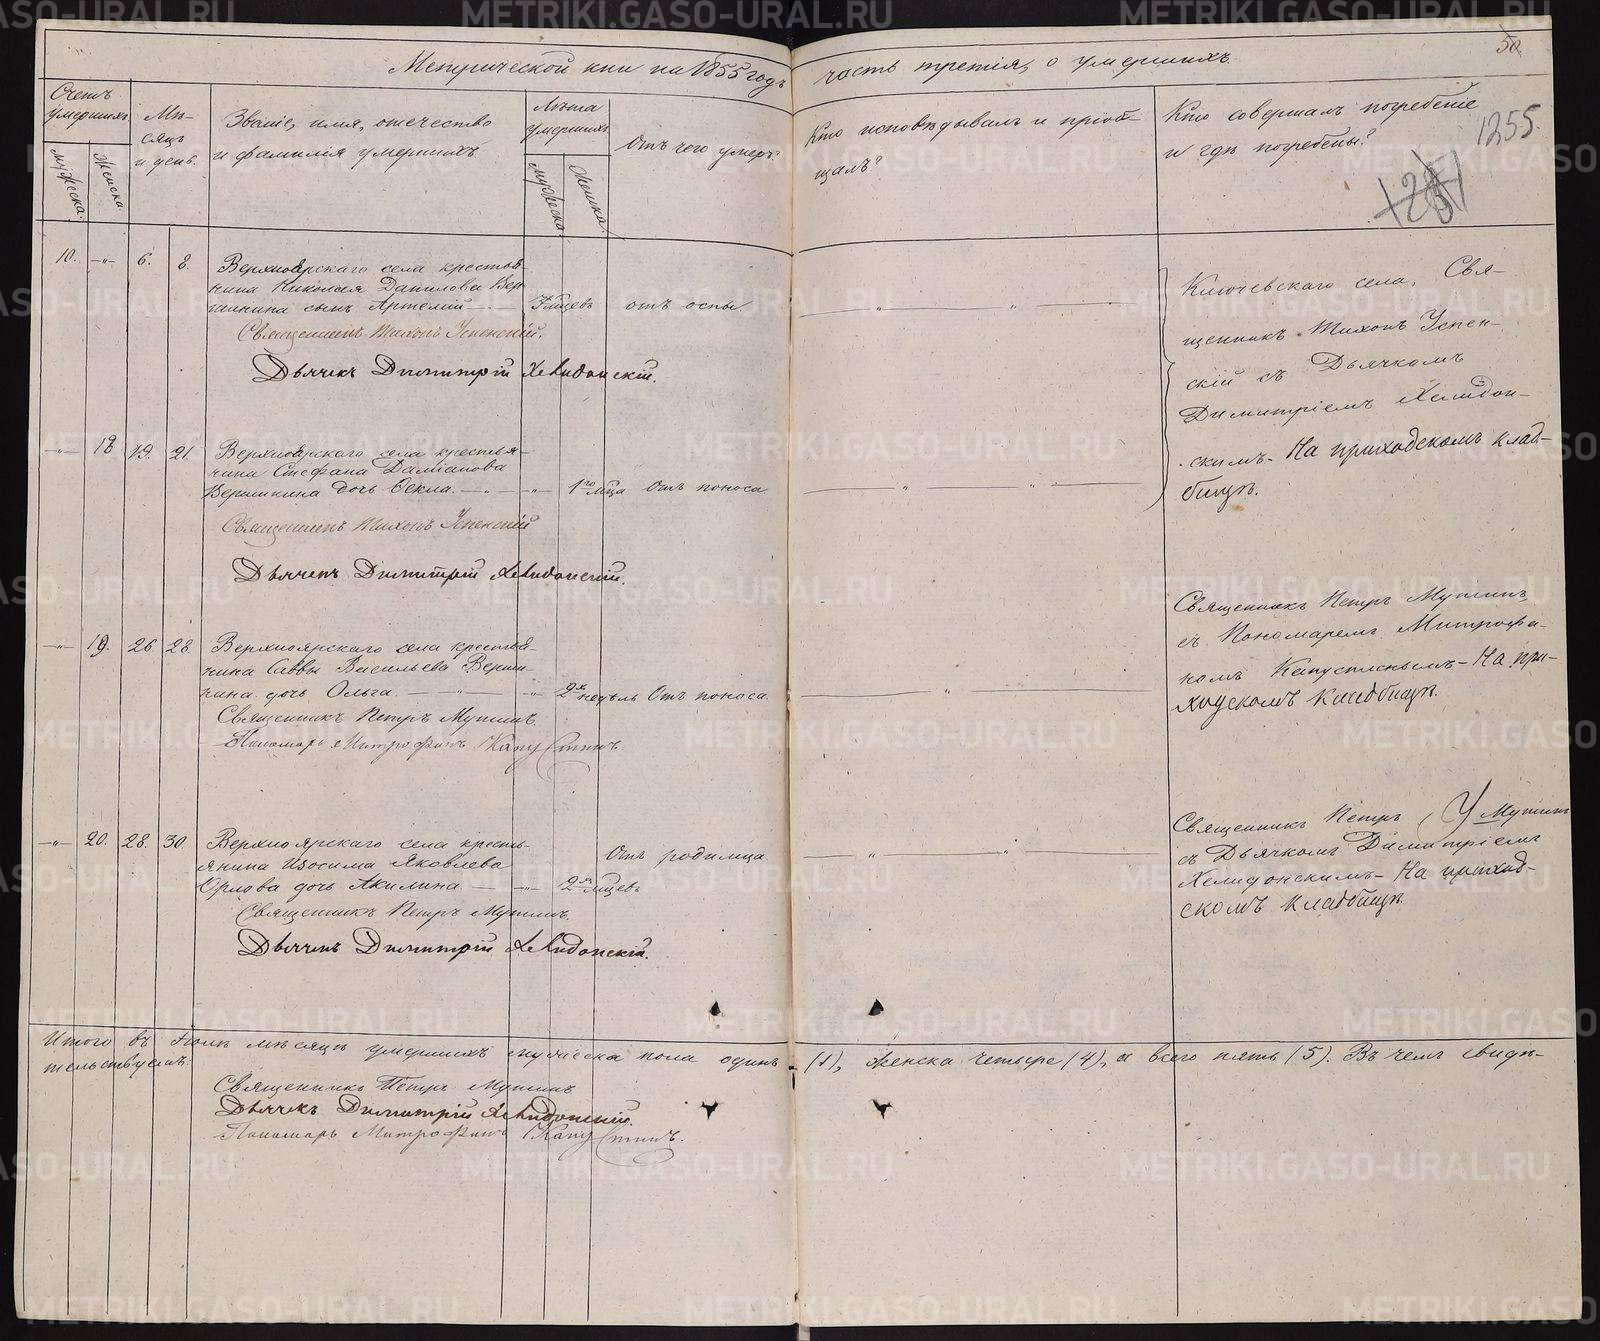 Метрической кни на 1855 годъ часть третія, о умершихъ
50
1255
Счетъ умершихъ
мужеска.
женска
Мѣ-
сяцъ
и день.
Званіе, имя, отечество
и фамилія умершихъ
Лѣта
умершихъ
мужеска.
женска.
Отъ чего умеръ.
Кто исповѣдывалъ и пріоб-
щалъ?
Кто совершалъ погребеніе
и гдѣ погребены?
10. —„— 6. 8.
Верхнеярскаго села крестья-
нина Николая Данилова Вер-
шинина сынъ Артемій
отъ оспы.
Священникъ Тихонъ Успенскій.
Дьячекъ Димитрій Хелидонскій.
Ключевскаго села, Свя-
щенникъ Тихонъ Успен-
скій съ Дьячкомъ
Димитріемъ Хелидон-
скимъ. На приходскомъ клад-
бищѣ.
—„— 18 19. 21.
Верхнеярскаго села крестья-
нина Стефана Даміанова
Вершинина дочь Ѳекла. —„— 1го мца Отъ поноса
Священникъ Тихонъ Успенскій
Дьячекъ Димитрій Хелидонскій.
—„— 19. 26 28
Верхноярскаго села крестья-
нина Саввы Васильева Верши-
нина дочь Ольга. —„— 2хъ недѣль Отъ поноса.
Священникъ Петръ Мутинъ.
Пономарь Митрофанъ Капустинъ.
Священникъ Петръ Мутинъ,
съ Пономаремъ Митрофа-
номъ Капустинымъ – На при-
ходскомъ кладбищѣ.
—„— 20. 28. 30
Верхноярскаго села кресть-
янина Изосима Яковлева
Орлова дочь Акилина —„— 2хъ мцевъ
Отъ родимца
Священникъ Петръ Мутинъ.
Дьячекъ Димитрій Хелидонскій.
Священникъ Петръ Мутинъ
съ Дьячкомъ Димитріемъ
Хелидонскимъ – На приход-
скомъ кладбищѣ.
Итого въ Іюлѣ мѣсяцѣ умершихъ мужеска пола одинъ (1), женска четыре (4), а всего пять (5). Въ чемъ свидѣ-
тельствуемъ:
Священникъ Петръ Мутинъ
Дьячекъ Димитрій Хелидонскій.
Пономарь Митрофанъ Капустинъ.
METRIKI.GASO-URAL.RU